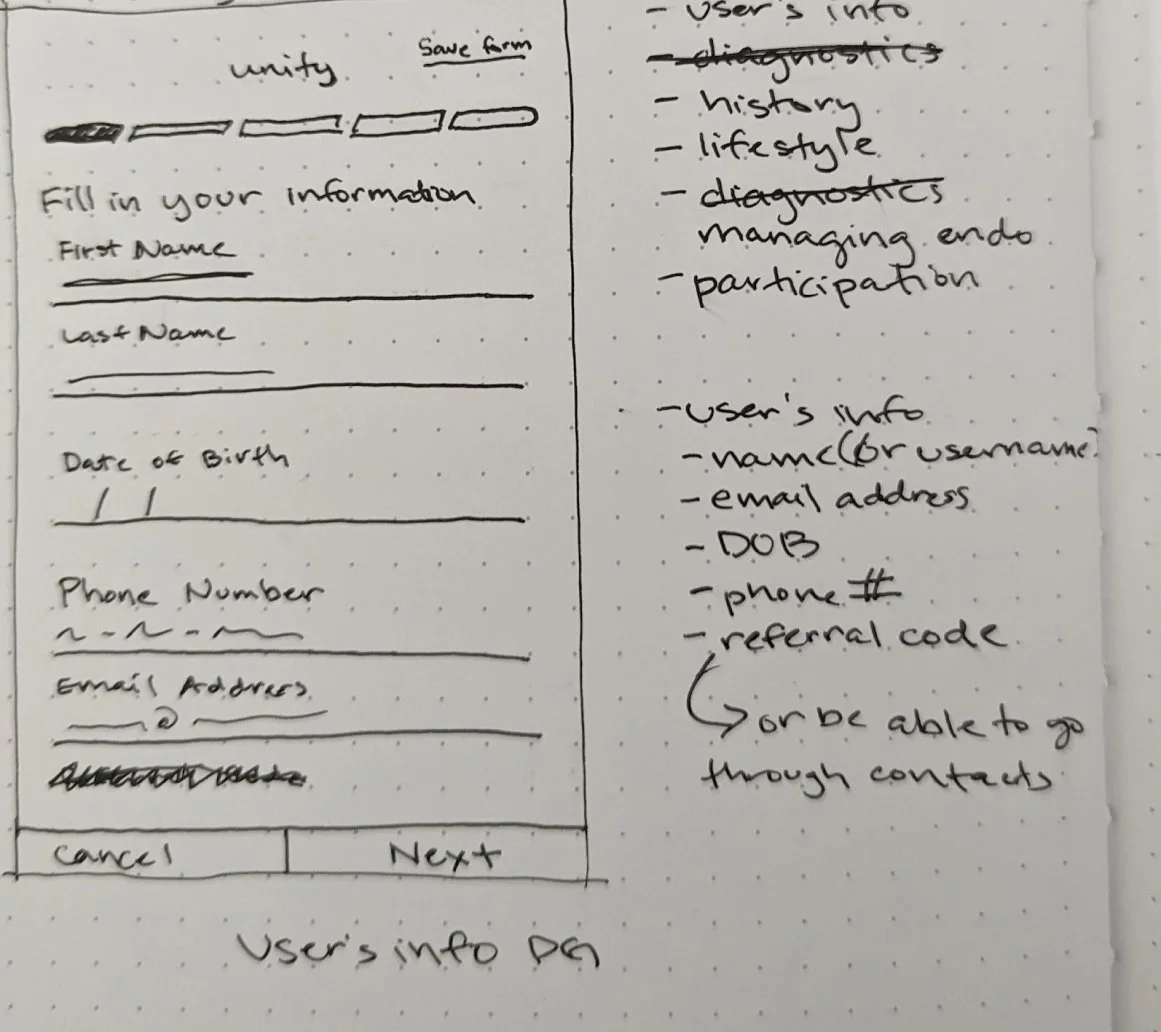 unity
Save form
Fill in your information
First Name
Last Name
Date of Birth
/ /
Phone Number
Email Address
@
Cancel
Next
User's info
- user's info
- diagnostics
- history
- lifestyle
- diagnostics
managing endo
- participation
- user's info
- name (or username)
- email address
- DOB
- phone #
- referral code
or be able to go
through contacts